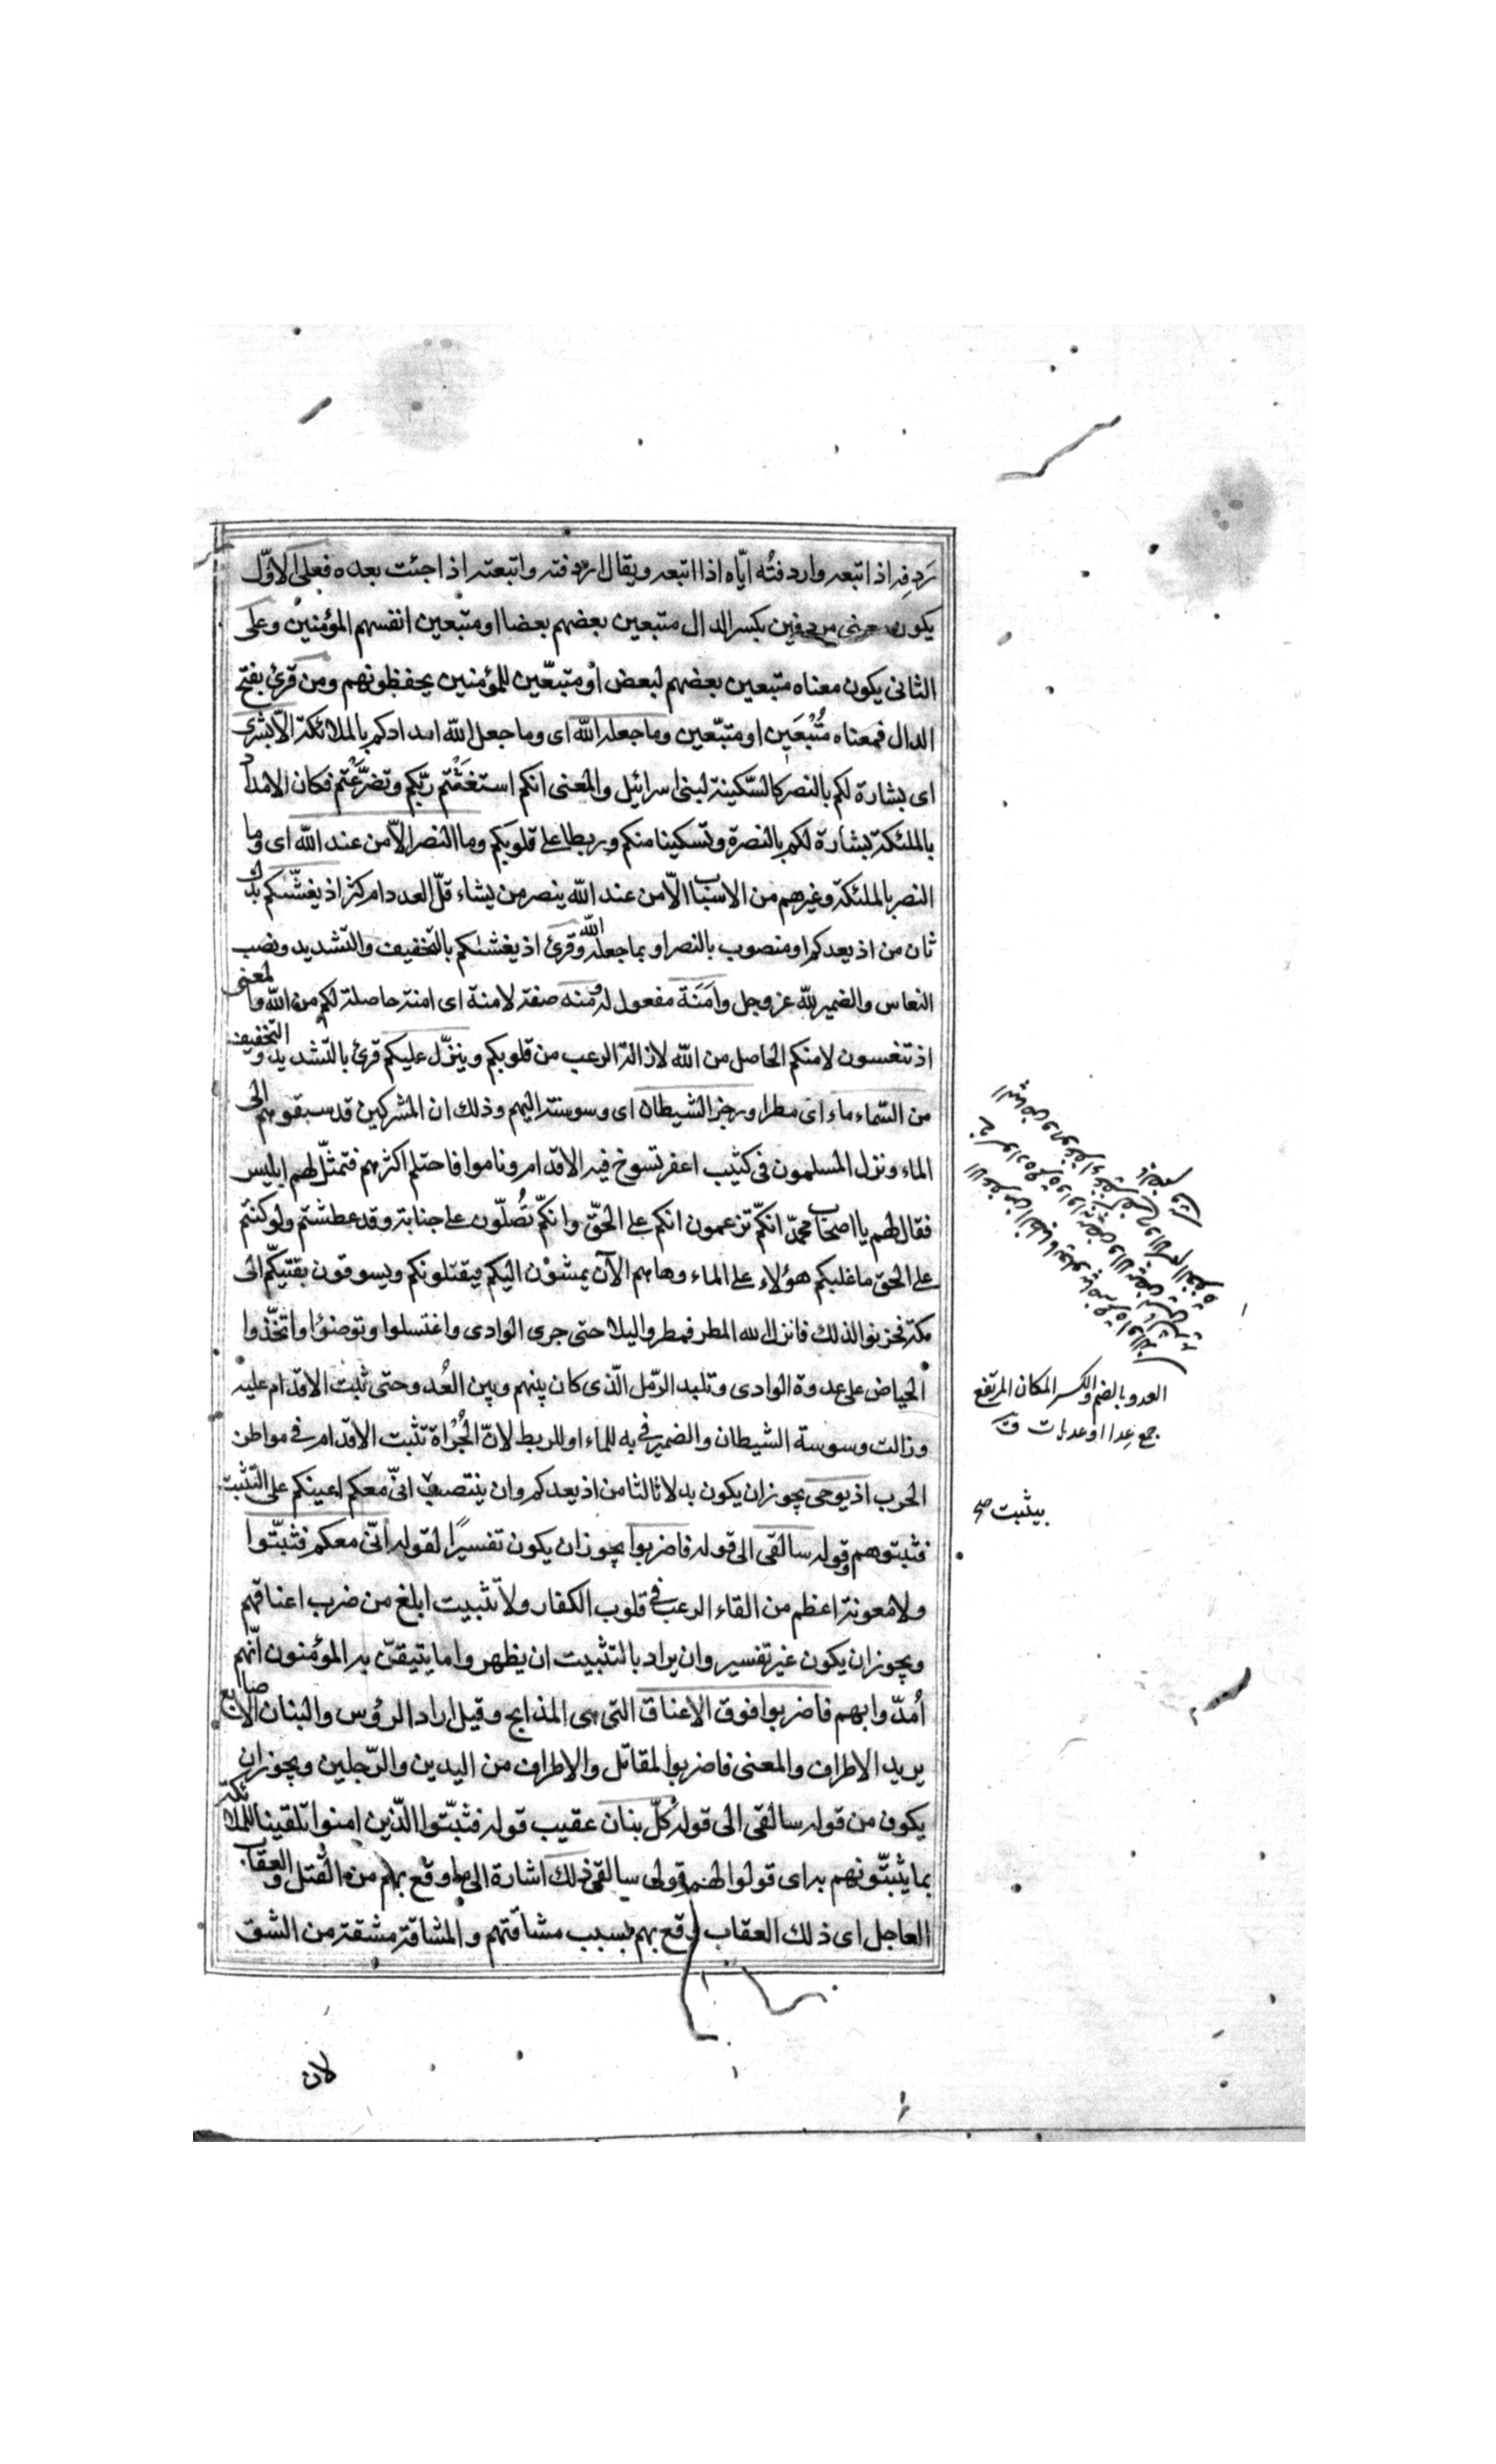 رَدِفه اذا تبعه واردفتُه ايّاه اذا اتبعه ويقال اردفته واتبعته اذا جئت بعده فعلى الاوّل
يكون معنى مردفين بكسر الدال متبعين بعضهم بعضا او متبعين انفسهم المؤمنين وعلى
الثانى يكون معناه متبعين بعضهم لبعض او متبعين للمؤمنين يحفظونهم ومن قرئ بفتح
الدال فمعناه مُتْبَعَين او متبّعين وما جعله الله اى وما جعل الله امدادكم بالملائكة الّا بشرى
اى بشارة لكم بالنصر كالسّكينة لبنى اسرائيل والمعنى انكم استغثتم ربّكم وتضرّعتم فكان الامداد
بالملئكة بشارة لكم بالنصرة وتسكينا منكم وربطا على قلوبكم وما النصر الّا من عند الله اى وما
النصر بالملئكة وغيرهم من الاسباب الّا من عند الله ينصر من يشاء قلّ العدد ام كثر اذ يغشّيكم بدل
ثان من اذ يعدكم او منصوب بالنصر او بما جعله الله وقرئ اذ يغشيكم بالتخفيف والتشديد ونصب
النعاس والضمير لله عز وجل وامَنَة مفعول له ومنه صفة لامنة اى امنة حاصلة لكم من الله والمعنى
اذ تنعسون لامنكم الحاصل من الله لازالة الرعب من قلوبكم وينزّل عليكم قرئ بالتشديد والتخفيف
من السّماء ماء اى مطرا ورجز الشيطان اى وسوسته اليهم وذلك ان المشركين قد سبقوهم الى
الماء ونزل المسلمون فى كثيب اعفر تسوخ فيه الاقدام وناموا فاحتلم اكثرهم فتمثّل لهم ابليس
فقال لهم يا اصحاب محمّد انكم تزعمون انكم على الحقّ وانكم تُصلّون على جنابة وقد عطشتم ولو كنتم
على الحق ما غلبكم هؤلاء على الماء وها هم الآن يمشون اليكم فيقتلونكم ويسوقون بقيّتكم الى
مكة فحزنوا لذلك فانزل الله المطر فمطروا ليلا حتى جرى الوادى واغتسلوا وتوضئوا واتخّذوا
الحياض على عدوة الوادى وتلبد الرّمل الّذى كان بينهم وبين العُدوّ حتى ثبت الاقدام عليه
وزالت وسوسة الشيطان والضمير فى به للماء او للربط لانّ الجُرْاة تثبت الاقدام فى مواطن
الحرب اذ يوحى يجوز ان يكون بدلا ثالثا من اذ يعدكم وان ينتصب انّى معكم اعينكم على التثبيت
فثبتوهم وقوله سالقى الى قوله فاضربوا يجوز ان يكون تفسيرًا لقوله انّى معكم فثبّتوا
ولا معونة اعظم من القاء الرعب فى قلوب الكفار ولا تثبيت ابلغ من ضرب اعناقهم
ويجوز ان يكون غير تفسير وان يراد بالتثبيت ان يظهروا ما يتيقّن به المؤمنون انّهم
اُمدّوا بهم فاضربوا فوق الاعناق التى هى المذابح وقيل اراد الرؤس والبنان الاصابع
يريد الاطراف والمعنى فاضربوا المقاتل والاطراف من اليدين والرّجلين ويجوز ان
يكون من قوله سالقى الى قوله كلّ بنان عقيب قوله فثبّتوا الّذين امنوا تلقينا للملائكة
بما يثبّتونهم به اى قولوا لهم قولى سالقى ذلك اشارة الى ما وقع بهم من القتل والعقاب
العاجل اى ذلك العقاب وقع بهم بسبب مشاقّتهم والمشاقة مشقة من الشق
العدو بالضم والكسر المكان المرتفع
جمع عِدا او عدیات
بيثبت صح
لان